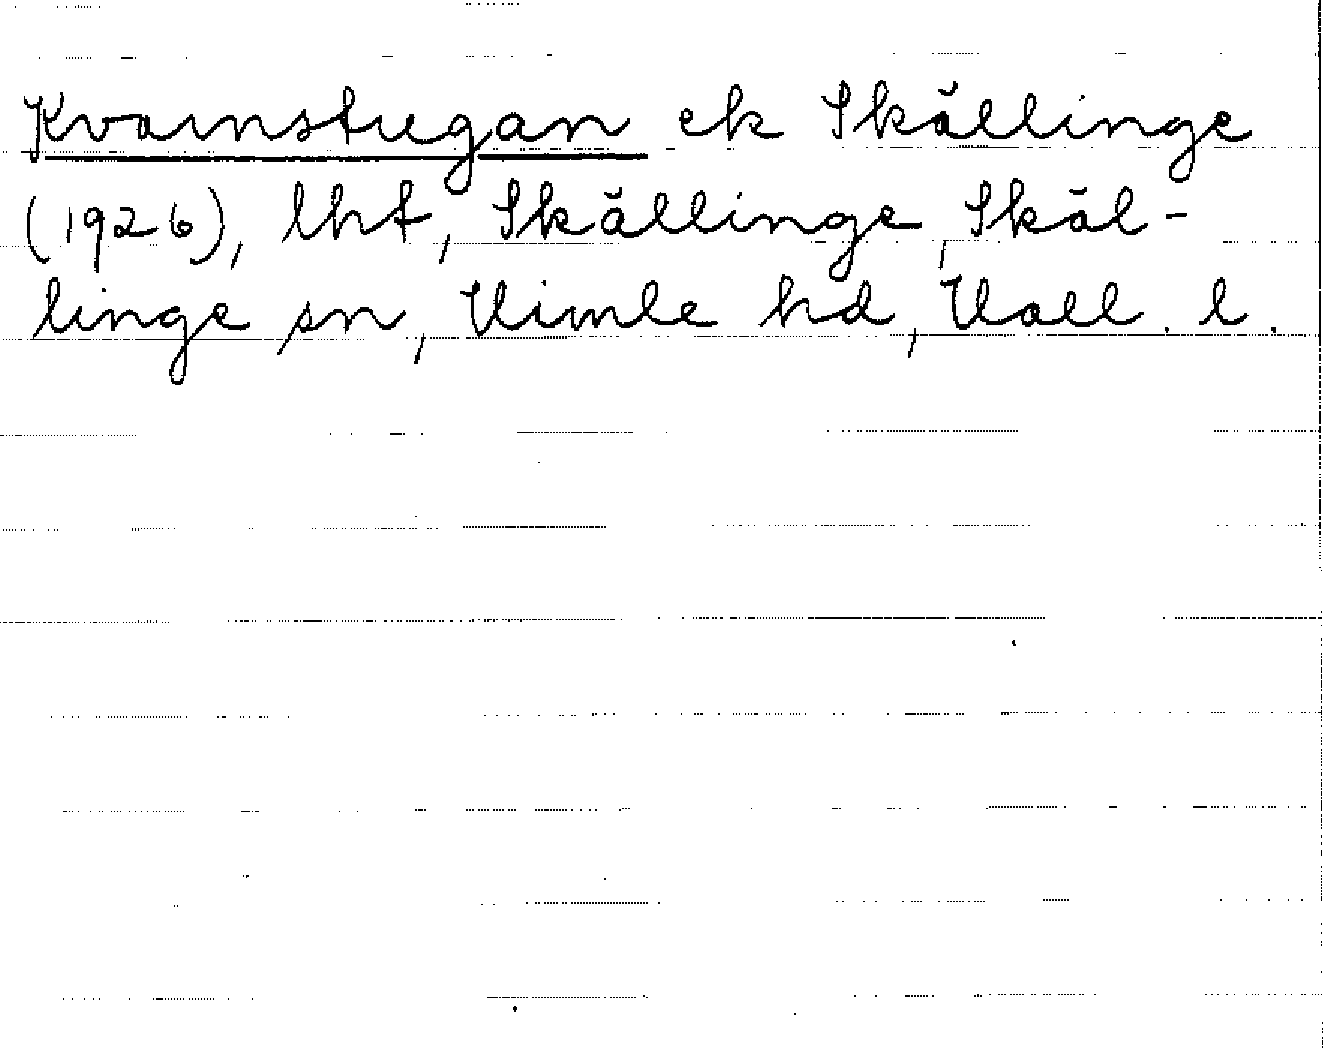 Kvarnstugan ek Skällinge
(1926), lht, Skällinge, Skäl-
linge sn, Himle hd, Hall. l.